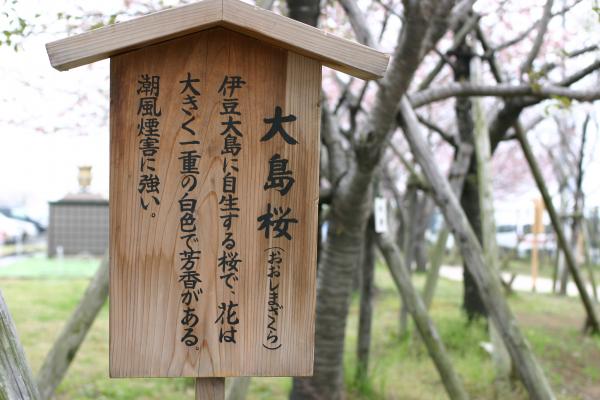 大島桜(おおしまざくら)
伊豆大島に自生する桜で、花は
大きく一重の白色で芳香がある。
潮風煙害に強い。